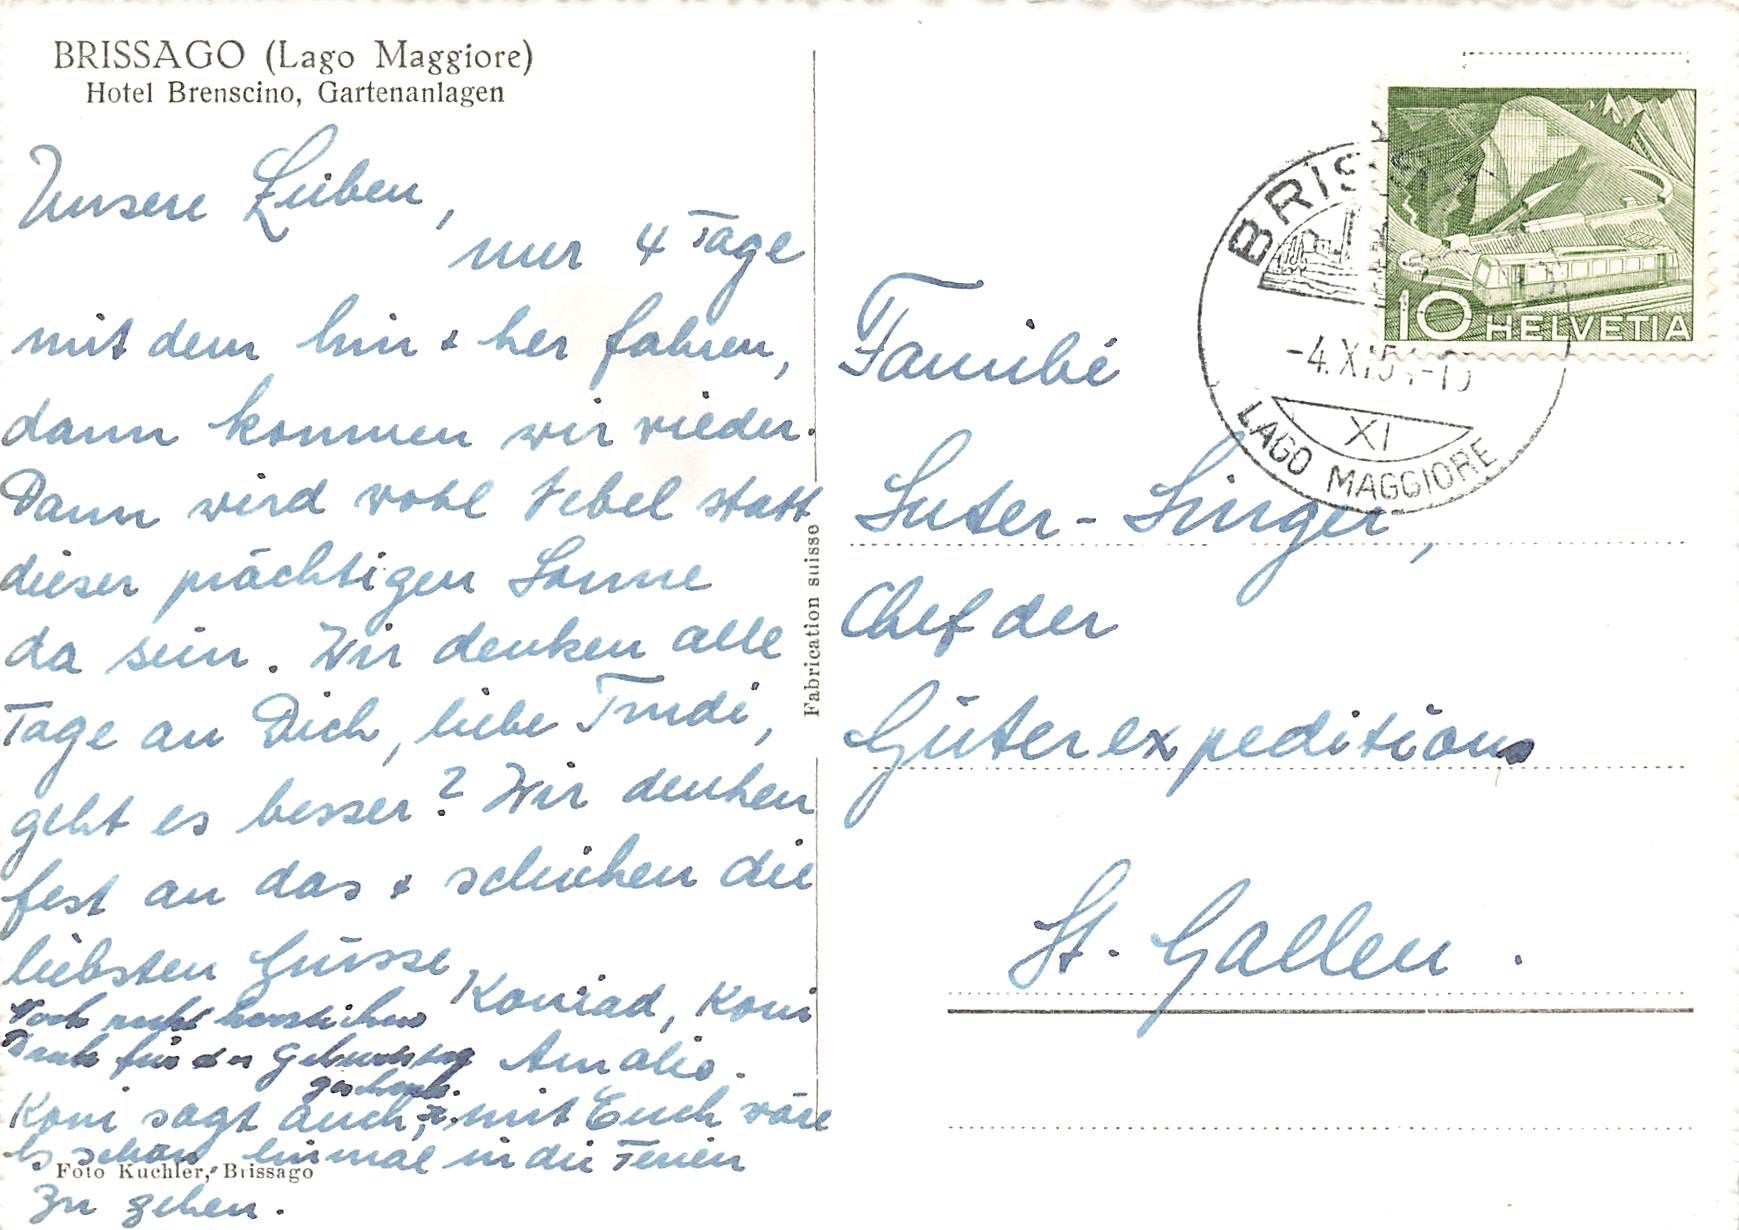 BRISSAGO (Lago Maggiore)
Hotel Brenscino, Gartenanlagen
Unsere Lieben,
nur 4 Tage
mit dem hin + her fahren,
dann kommen wir wieder.
Dann wird wohl Nebel statt
dieser prächtigen Sonne
da sein. Wir denken alle
Tage an Dich, liebe Trudi,
geht es besser? Wir denken
fest an das + schicken die
liebsten Grüsse
Konrad, Koni
Amalie.
Noch recht herzlichen
Dank für das Geburtstag
geschenk.
Koni sagt auch, mit Euch wäre
es schön einmal in die Ferien
zu gehen.
Foto Kuchler, Brissago
Fabrication suisse
BRIS
-4.XI.54-
XI
LAGO MAGGIORE
10 HELVETIA
Familie
Suter-Singer,
Chef der
Güterexpeditions
St. Gallen.